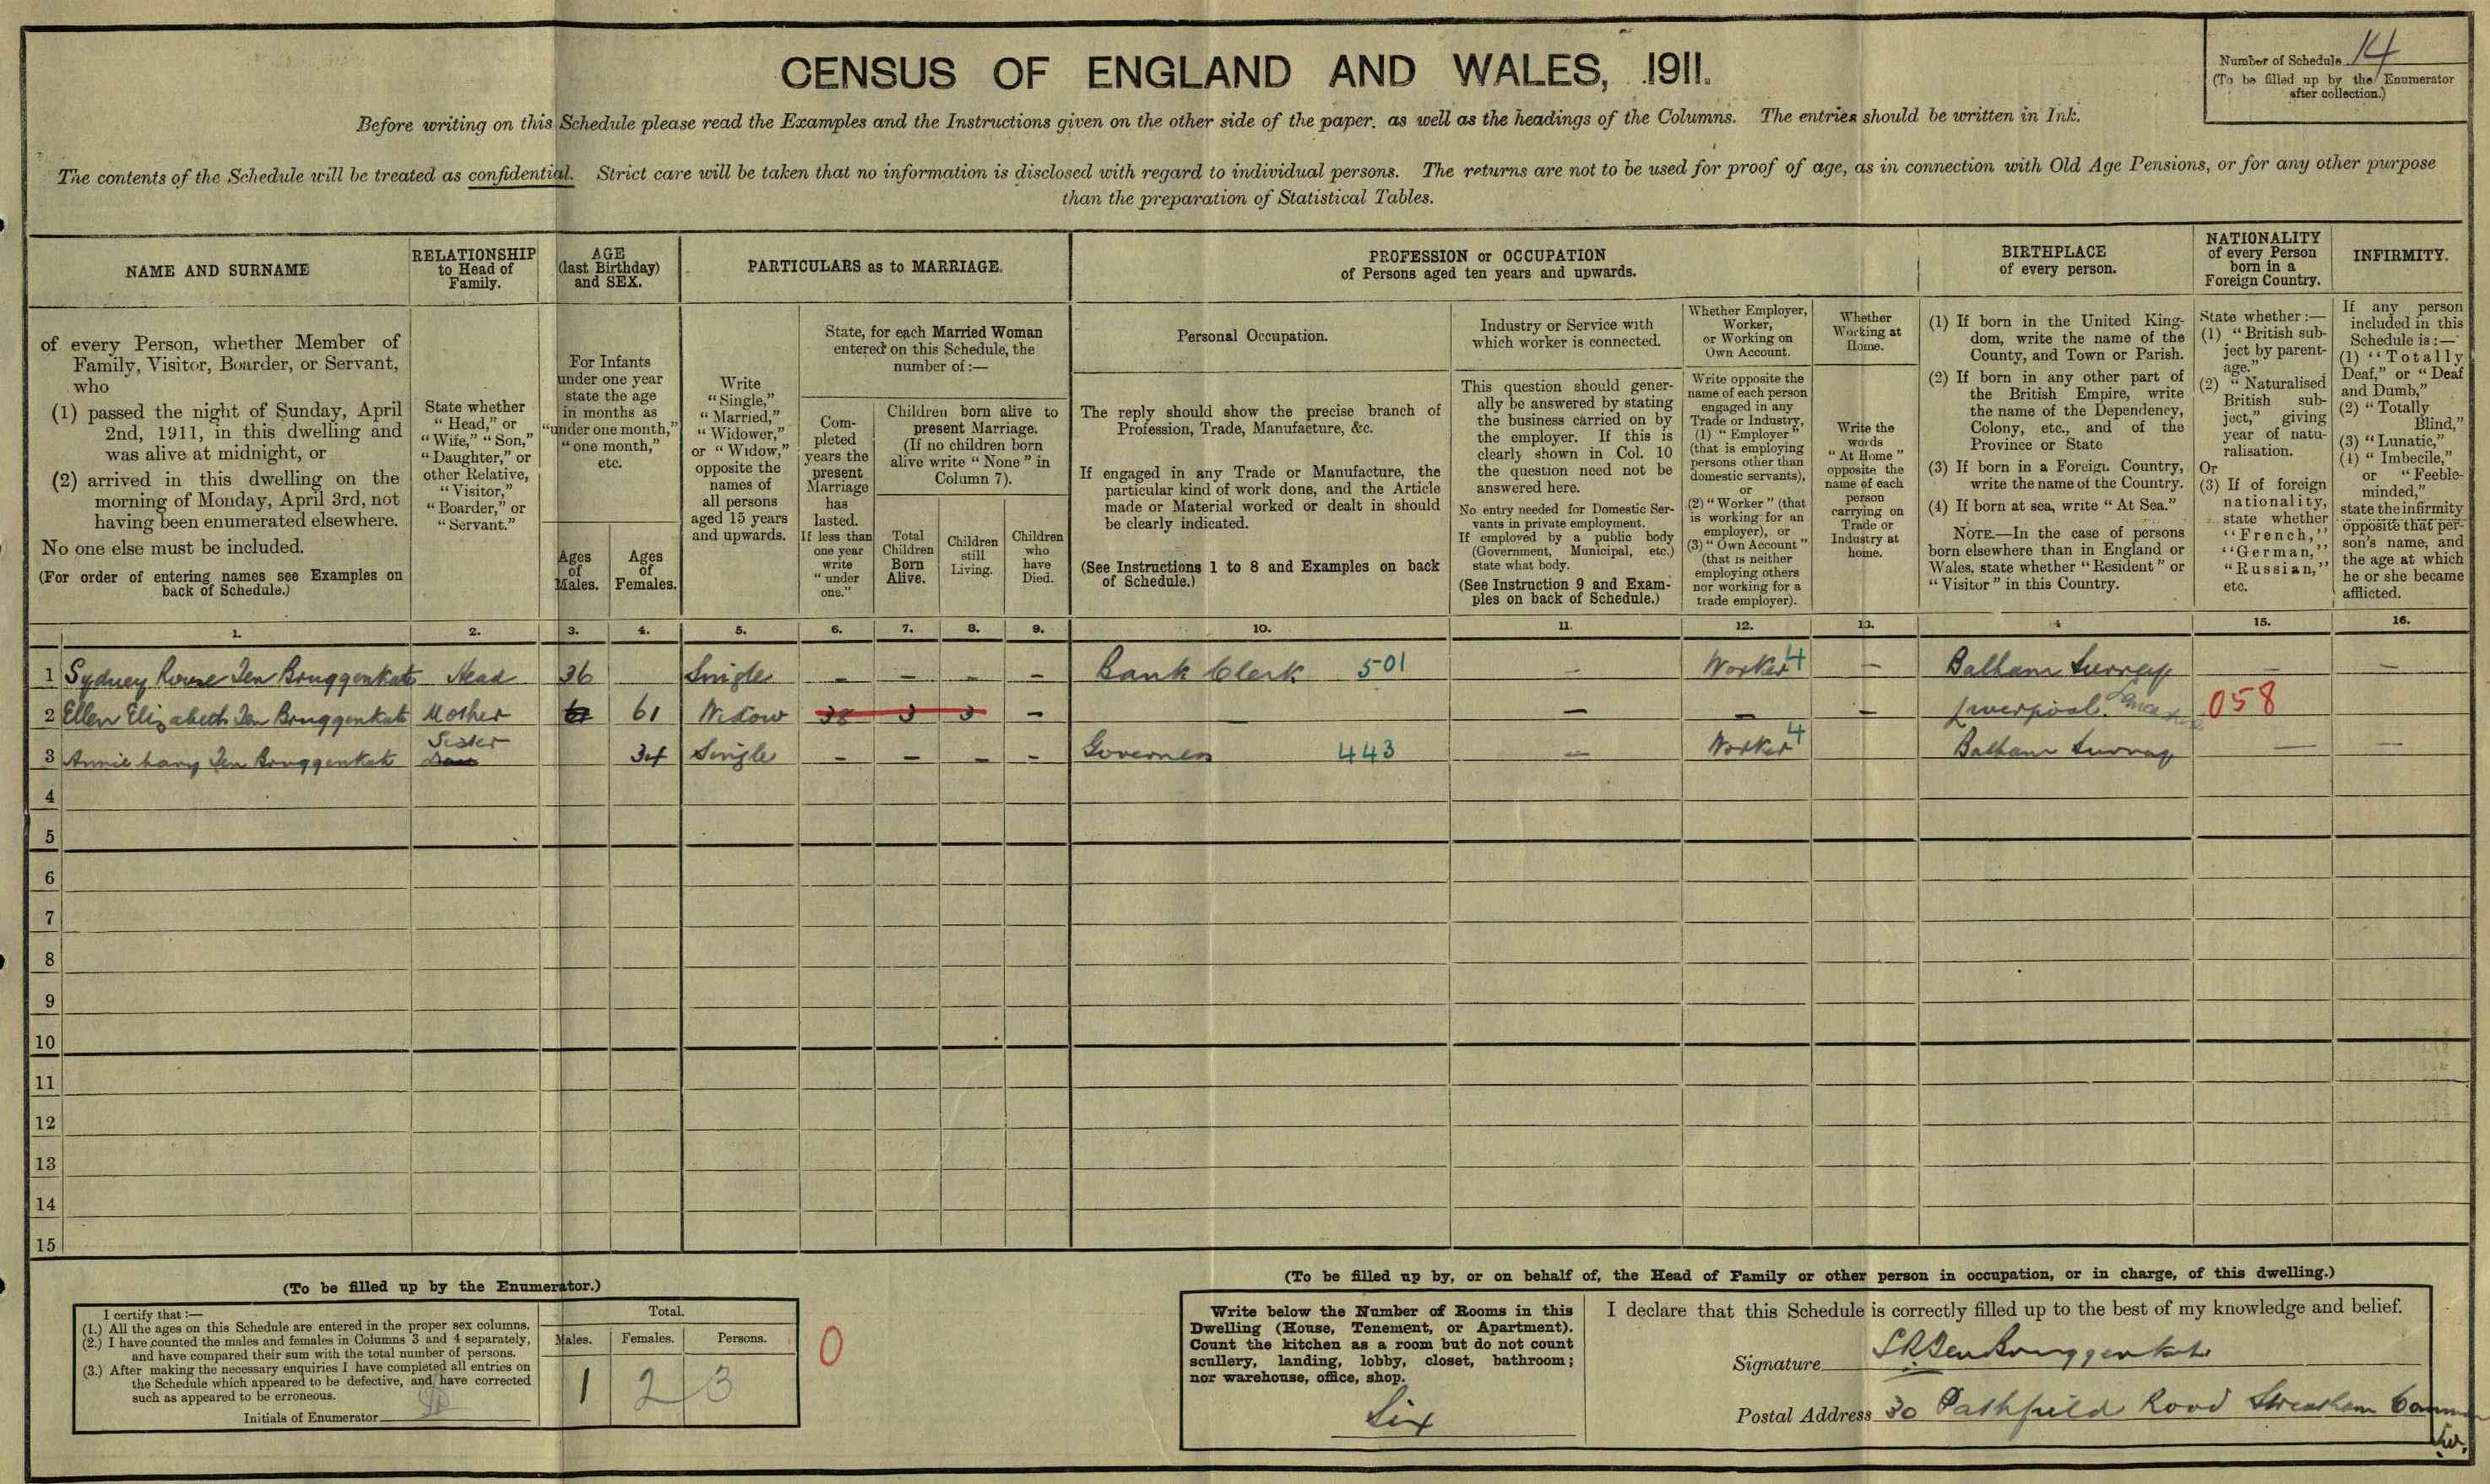 CENSUS OF ENGLAND AND WALES, 1911.
Number of Schedule 14
(To be filled up by the Enumerator
after collection.)
Before writing on this Schedule please read the Examples and the Instructions given on the other side of the paper, as well as the headings of the Columns. The entries should be written in Ink.
The contents of the Schedule will be treated as confidential. Strict care will be taken that no information is disclosed with regard to individual persons. The returns are not to be used for proof of age, as in connection with Old Age Pensions, or for any other purpose
than the preparation of Statistical Tables.
NAME AND SURNAME
of every Person, whether Member of
Family, Visitor, Boarder, or Servant,
who
(1) passed the night of Sunday, April
2nd, 1911, in this dwelling and
was alive at midnight, or
(2) arrived in this dwelling on the
morning of Monday, April 3rd, not
having been enumerated elsewhere.
No one else must be included.
(For order of entering names see Examples on
back of Schedule.)
RELATIONSHIP
to Head of
Family.
State whether
"Head," or
"Wife," "Son,"
"Daughter," or
other Relative,
"Visitor,"
"Boarder," or
"Servant."
AGE
(last Birthday)
and SEX.
For Infants
under one year
state the age
in months as
"under one month,"
"one month,"
etc.
Ages
of
Males.
Ages
of
Females.
PARTICULARS as to MARRIAGE.
Write
"Single,"
"Married,"
"Widower,"
or "Widow,"
opposite the
names of
all persons
aged 15 years
and upwards.
State, for each Married Woman
entered on this Schedule, the
number of:—
Com-
pleted
years the
present
Marriage
has
lasted.
If less than
one year
write
"under
one."
Children born alive to
present Marriage.
(If no children born
alive write "None" in
Column 7).
Total
Children
Born
Alive.
Children
still
Living.
Children
who
have
Died.
PROFESSION or OCCUPATION
of Persons aged ten years and upwards.
Personal Occupation.
The reply should show the precise branch of
Profession, Trade, Manufacture, &c.
If engaged in any Trade or Manufacture, the
particular kind of work done, and the Article
made or Material worked or dealt in should
be clearly indicated.
(See Instructions 1 to 8 and Examples on back
of Schedule.)
Industry or Service with
which worker is connected.
This question should gener-
ally be answered by stating
the business carried on by
the employer. If this is
clearly shown in Col. 10
the question need not be
answered here.
No entry needed for Domestic Ser-
vants in private employment.
If employed by a public body
(Government, Municipal, etc.)
state what body.
(See Instruction 9 and Exam-
ples on back of Schedule.)
Whether Employer,
Worker,
or Working on
Own Account.
Write opposite the
name of each person
engaged in any
Trade or Industry,
(1) "Employer"
(that is employing
persons other than
domestic servants),
or
(2) "Worker" (that
is working for an
employer), or
(3) "Own Account"
(that is neither
employing others
nor working for a
trade employer).
Whether
Working at
Home.
Write the
words
"At Home"
opposite the
name of each
person
carrying on
Trade or
Industry at
home.
BIRTHPLACE
of every person.
(1) If born in the United King-
dom, write the name of the
County, and Town or Parish.
(2) If born in any other part of
the British Empire, write
the name of the Dependency,
Colony, etc., and of the
Province or State
(3) If born in a Foreign Country,
write the name of the Country.
(4) If born at sea, write "At Sea."
NOTE.—In the case of persons
born elsewhere than in England or
Wales, state whether "Resident" or
"Visitor" in this Country.
NATIONALITY
of every Person
born in a
Foreign Country.
State whether:—
(1) "British sub-
ject by parent-
age."
(2) "Naturalised
British sub-
ject," giving
year of natu-
ralisation.
Or
(3) If of foreign
nationality,
state whether
"French,"
"German,"
"Russian,"
etc.
INFIRMITY.
If any person
included in this
Schedule is:—
(1) "Totally
Deaf," or "Deaf
and Dumb,"
(2) "Totally
Blind,"
(3) "Lunatic,"
(4) "Imbecile,"
or "Feeble-
minded,"
state the infirmity
opposite that per-
son's name, and
the age at which
he or she became
afflicted.
1. 2. 3. 4. 5. 6. 7. 8. 9. 10. 11. 12. 13. 4 15. 16.
1 Sydney Rouse Ten Bruggenkate Head 36 Single – – – – Bank Clerk 501 – Worker 4 – Balham Surrey – –
2 Ellen Elizabeth Ten Bruggenkate Mother 61 Widow 38 3 3 – – – – – Liverpool Lancashire 058
3 Annie Ten Bruggenkate Sister 34 Single – – – – Governess 443 – Worker 4 Balham Surrey – –
4
5
6
7
8
9
10
11
12
13
14
15
(To be filled up by the Enumerator.)
I certify that:—
(1.) All the ages on this Schedule are entered in the proper sex columns.
(2.) I have counted the males and females in Columns 3 and 4 separately,
and have compared their sum with the total number of persons.
(3.) After making the necessary enquiries I have completed all entries on
the Schedule which appeared to be defective, and have corrected
such as appeared to be erroneous.
Initials of Enumerator
Total.
Males. Females. Persons.
1 2 3
0
(To be filled up by, or on behalf of, the Head of Family or other person in occupation, or in charge, of this dwelling.)
Write below the Number of Rooms in this
Dwelling (House, Tenement, or Apartment).
Count the kitchen as a room but do not count
scullery, landing, lobby, closet, bathroom;
nor warehouse, office, shop.
Six
I declare that this Schedule is correctly filled up to the best of my knowledge and belief.
Signature S R Ten Bruggenkate
Postal Address 30 Pathfield Road Streatham Common
S.W.